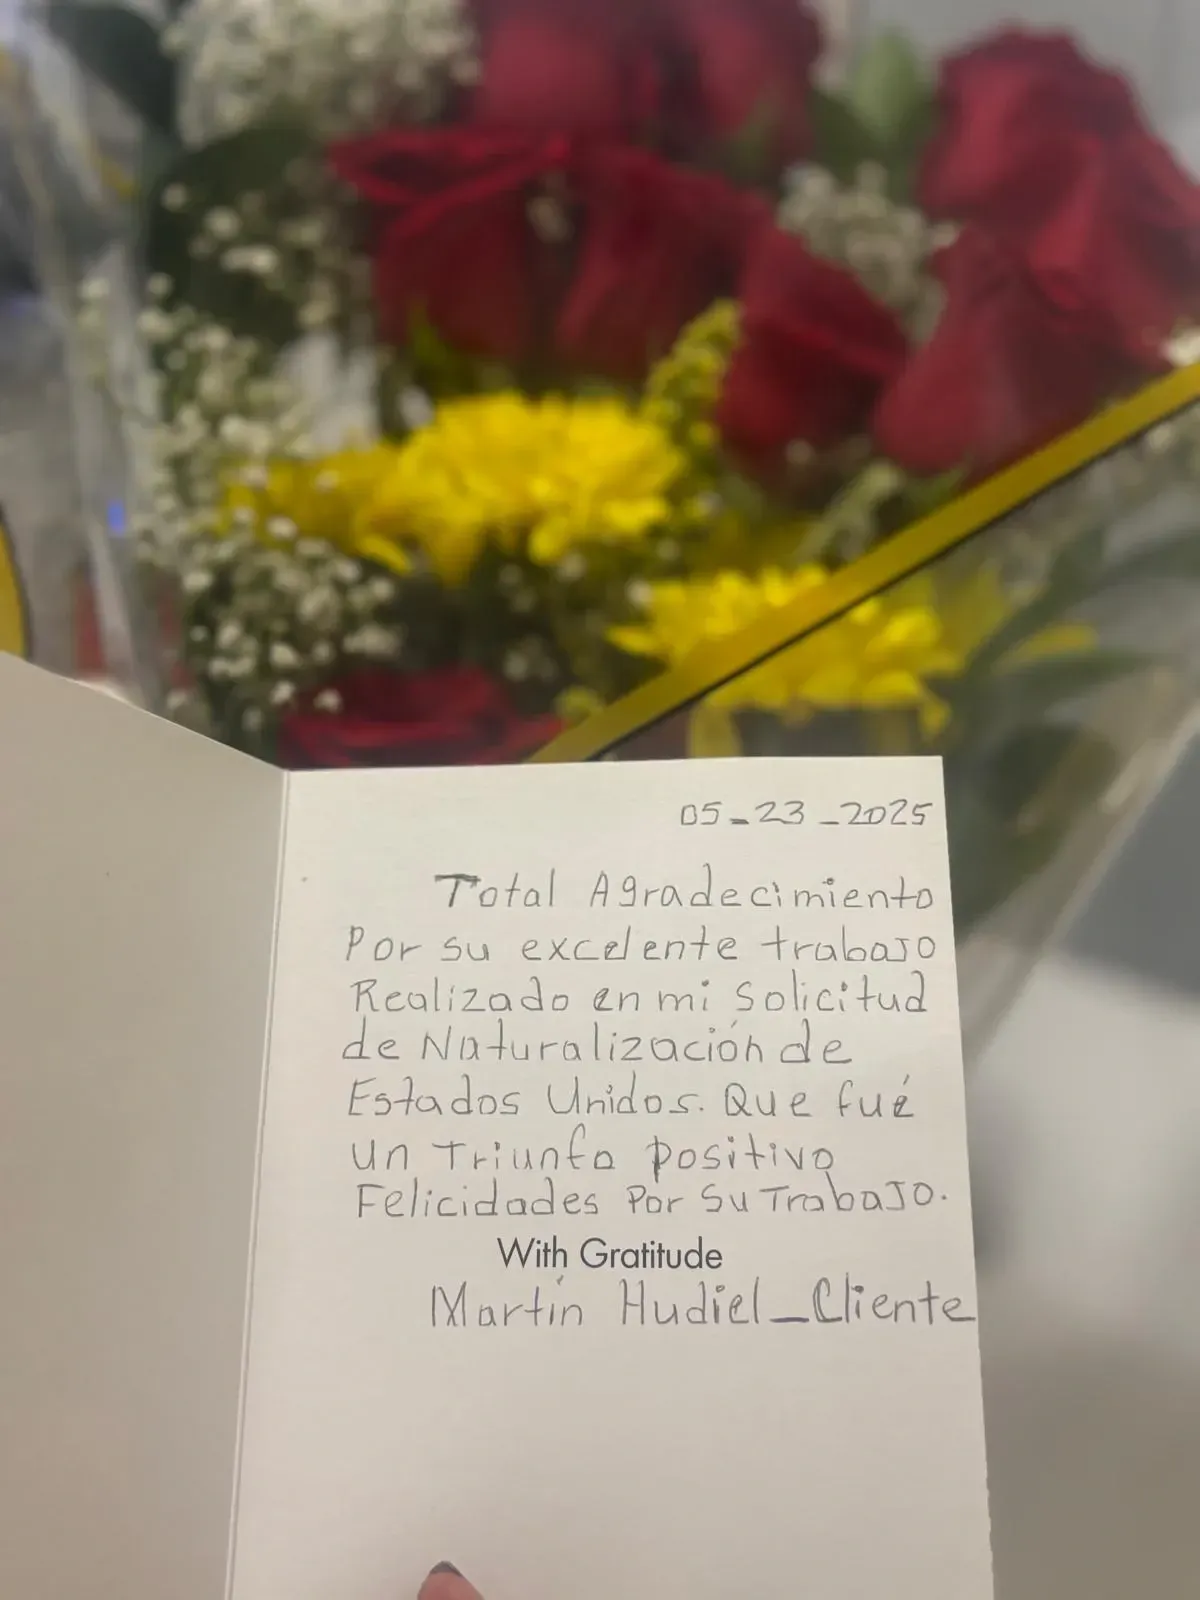 05-23-2025
Total Agradecimiento
Por su excelente trabajo
Realizado en mi solicitud
de Naturalización de
Estados Unidos. Que fué
un Triunfo positivo
Felicidades Por Su Trabajo.
With Gratitude
Martín Hudiel-Cliente